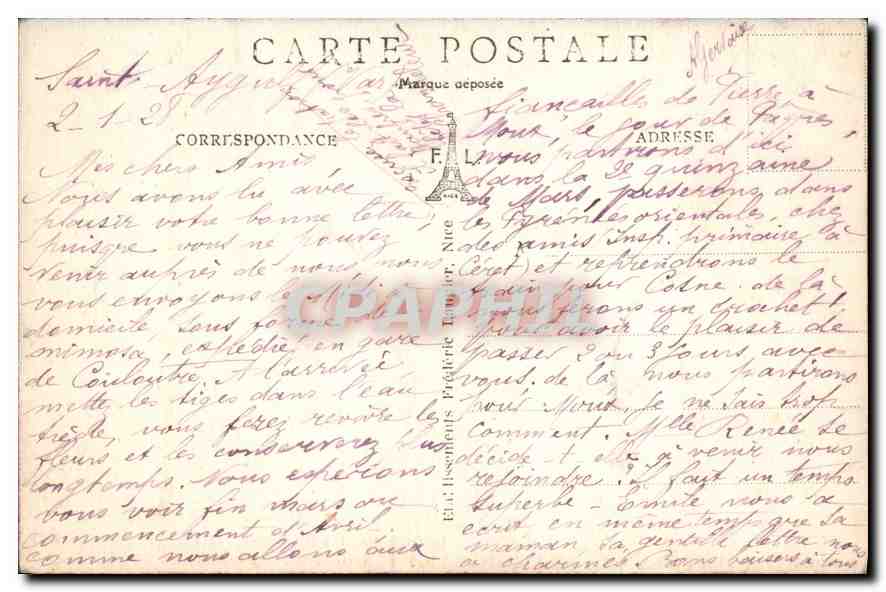 CARTE POSTALE
Marque déposée
CORRESPONDANCE
ADRESSE
F L
NICE
Saint Aygulf Var
2-1-28
Mes chers Amis
Nous avons lu avec
plaisir votre bonne lettre,
puisque vous ne pouvez
venir auprès de nous, nous
vous envoyons le Midi à
domicile, sous forme de
mimosa, expédié en gare
de Couloutre. A l'arrivée
mettez les tiges dans l'eau
tiède, vous ferez revivre les
fleurs et les conserverez plus
longtemps. Nous espérions
vous voir fin mars ou
commencement d'Avril
comme nous allons aux
fiançailles de Pierre à
Moux, le jour de Pâques,
nous partirons d'ici
dans la 2e quinzaine
de Mars, passerons dans
les Pyrénées orientales, chez
des amis Insp. primaire à
Céret) et reprendrons le
train pour Cosne. de là
nous ferons un crochet
pour avoir le plaisir de
passer 2 ou 3 jours avec
vous. de là nous partirons
pour Moux, je ne sais trop
comment. Mlle Renée se
décide-t-elle à venir nous
rejoindre? Il fait un temps
superbe - Emile nous a
écrit en même temps que sa
maman, sa gentille lettre nous
a charmés. Bons baisers à tous
Etablissements Frédéric Laugier, Nice
CPAPHIL